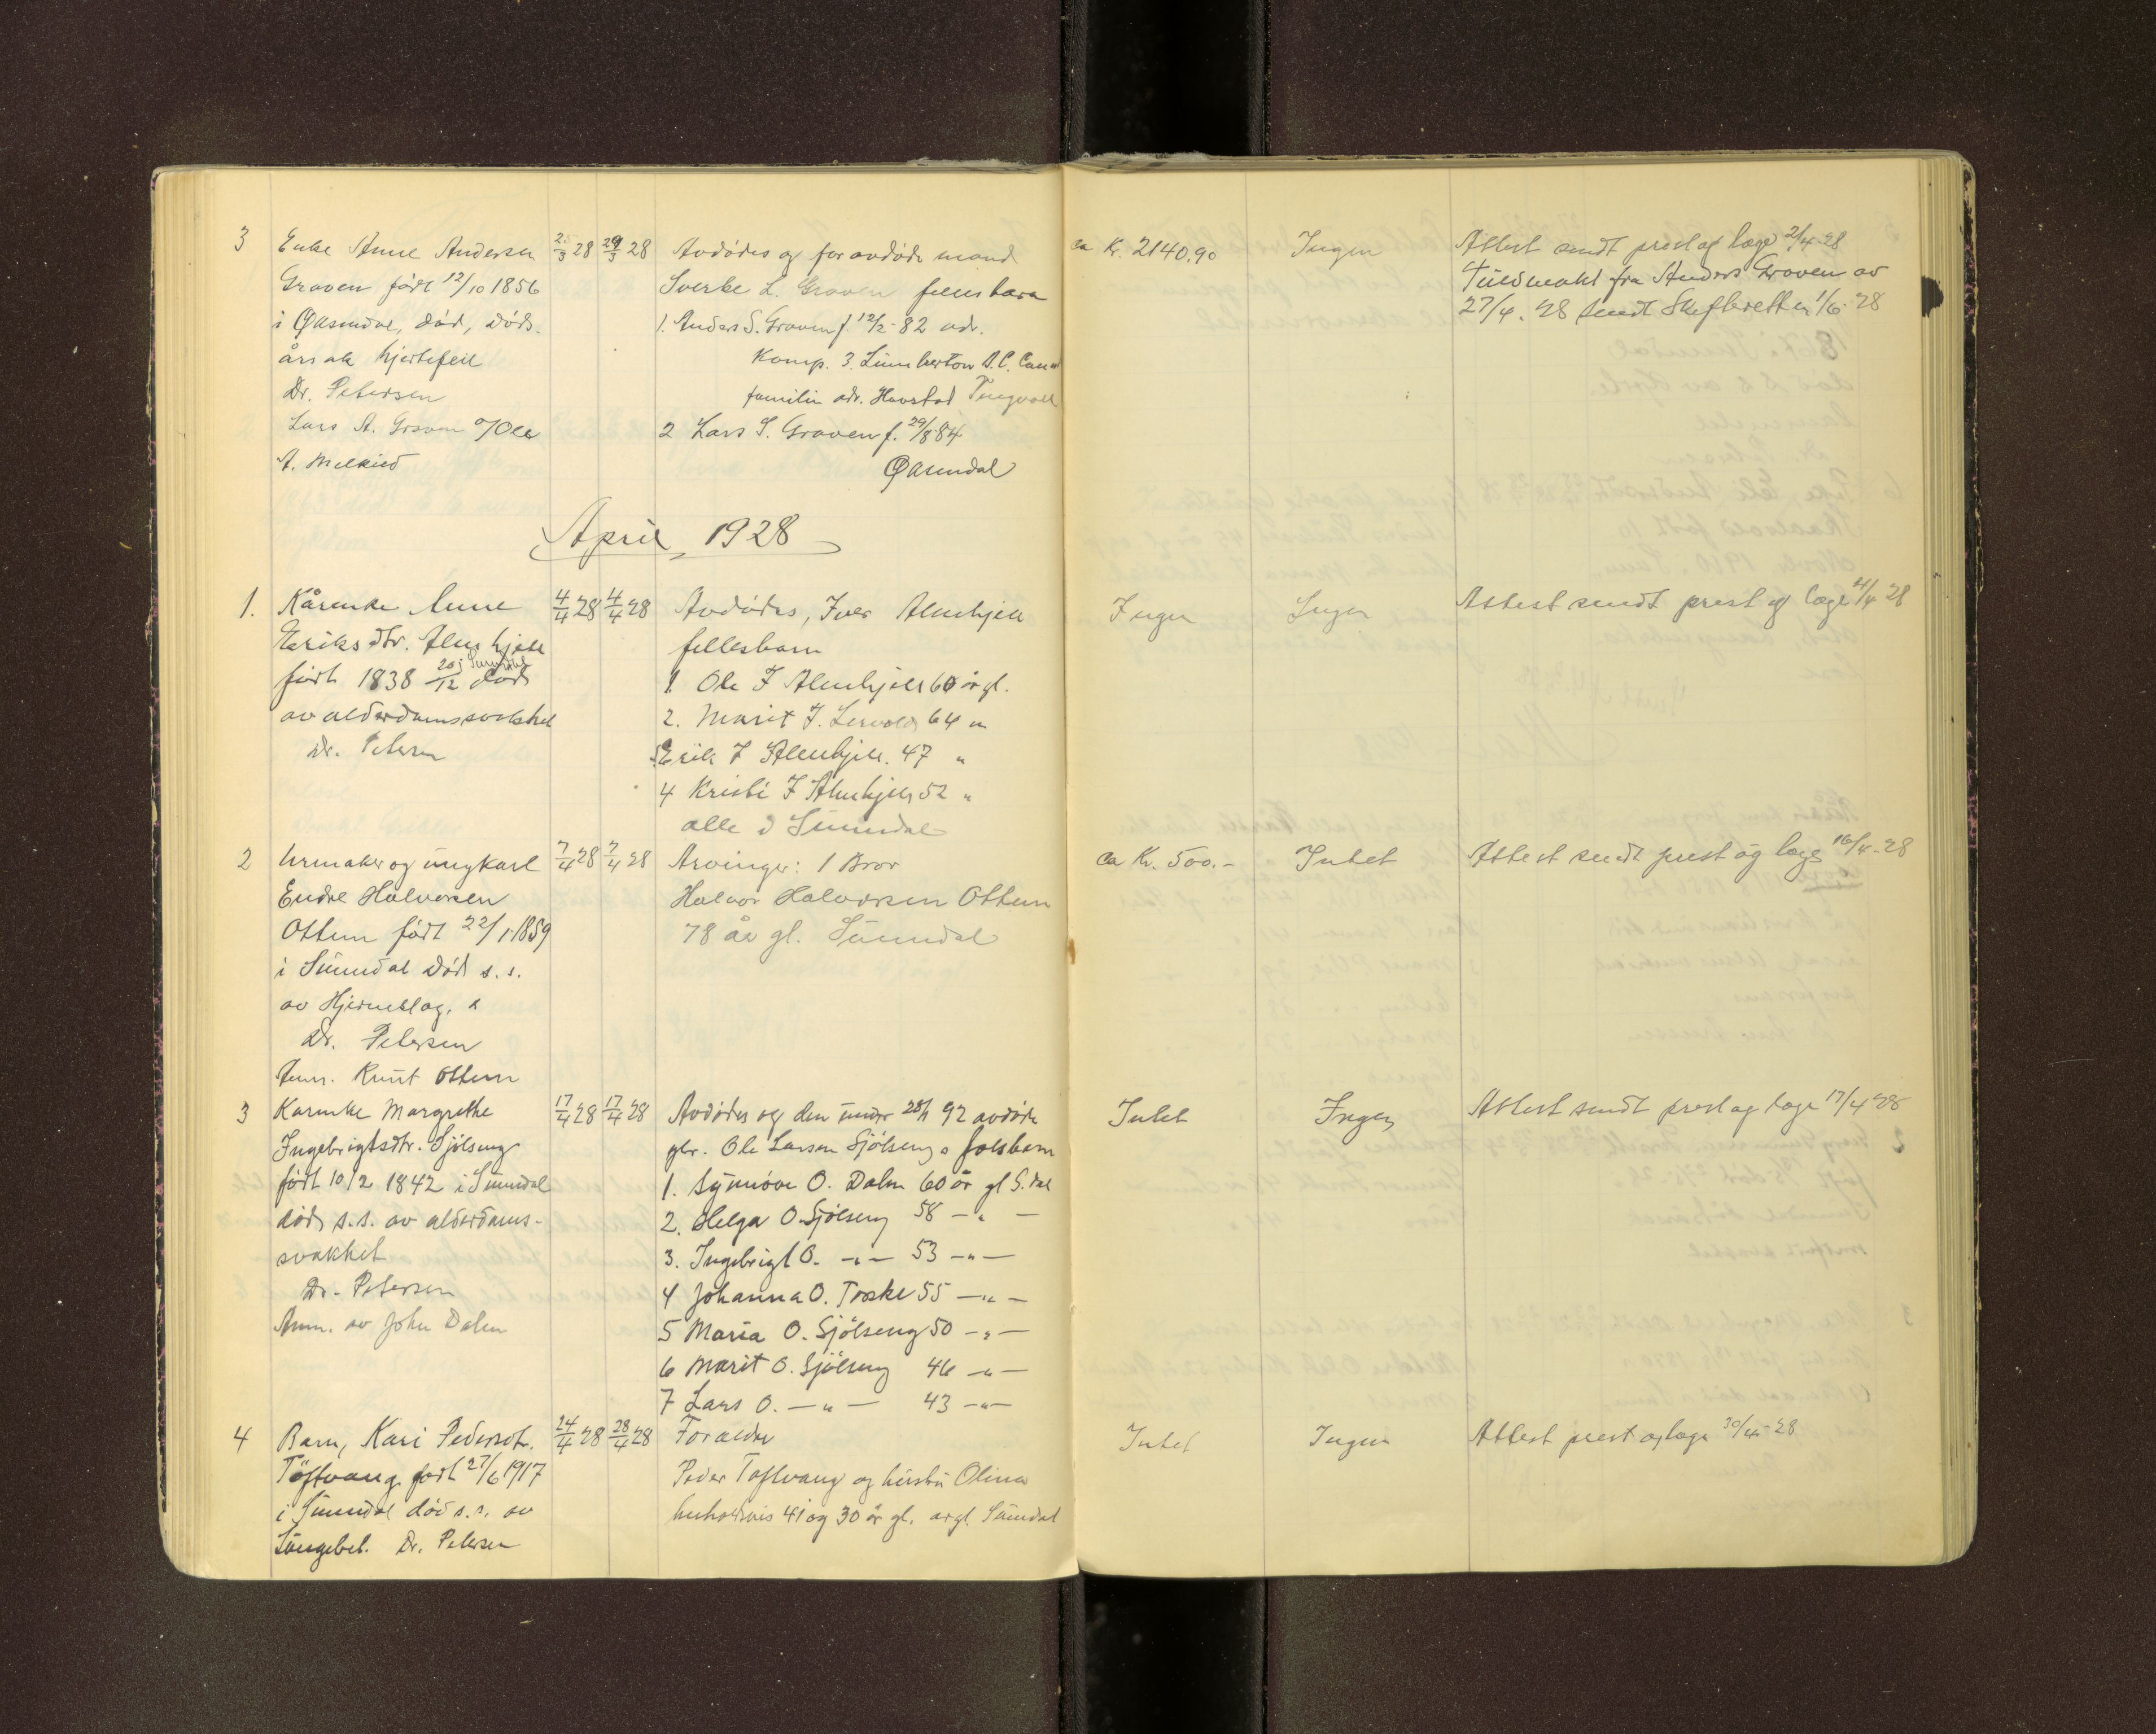 3 Enke Anne Andersen 25/3 28 29/3 28 Avdødes og for avdøde mand ca Kr. 2140.90 Ingen Attest sendt prest og læge 2/4-28
Graven født 12/10 1856 Sverke L. Graven fellesbarn Fuldmakt fra Anders Graven av
i Øksendal, død, døds- 1. Anders S. Graven f. 12/2-82 adr. 27/4. 28 sendt Skifteretten 1/6-28
årsak hjertefeil Kamp. 3. Lumberton B.C. Canad
Dr. Petersen familien adr. Havstad Tingvoll
Lars A. Graven o/Ole 2 Lars S. Graven f. 29/8 84
A. Melkild Øksendal
April 1928
1. Kårenke Anne 4/4 28 4/4 28 Avdødes, Iver Almskjell Ingen Ingen Attest sendt prest og læge 4/4 28
Eriksdtr. Almskjell fellesbarn
født 1838 20/12 i Sunndal død 1. Ole I Almskjell 60 år gl.
av alderdomssvakhet 2. Marit I. Lervold 64 "
Dr. Petersen 3. Erik I Almskjell. 47 "
4 Kristi I Almskjell 52 "
alle i Sunndal
2 Urmaker og ungkarl 7/4 28 7/4 28 Arvinger: 1 Bror ca Kr. 500.- Intet Attest sendt prest og læge 16/4-28
Endre Halvorsen Halvor Halvorsen Ottem
Ottem født 22/1-1859 78 år gl. Sunndal
i Sunndal død s.s.
av Hjerneslag.
Dr. Petersen
Anm. Knut Ottem
3 Karenke Margrethe 17/4 28 17/4 28 Avdødes og den under 28/1 92 avdøde Intet Ingen Attest sendt prest og læge 17/4 28
Ingebrigtsdtr. Sjølseng gbr. Ole Larsen Sjølsengs felsbarn
født 10/2 1842 i Sunndal 1. Synnøve O. Dalen 60 år gl S.dal
død s.s. av alderdoms- 2. Helga O. Sjølseng 58 - " -
svakhet 3. Ingebrigt O. - " - 53 - " -
Dr. Petersen 4 Johanna O. Toske 55 - " -
Anm. av John Dalen 5 Maria O. Sjølseng 50 - " -
6 Marit O. Sjølseng 46 - " -
7 Lars O. - " - 43 - " -
4 Barn, Kari Pedersdt. 24/4 28 28/4 28 Forældre Intet Ingen Attest prest og læge 30/4-28
Toftvang født 27/6 1917 Peder Toftvang og hustru Olina
i Sunndal død s.s. av henholdsvis 41 og 30 år gl. Sunndal
Lungebet. Dr. Petersen